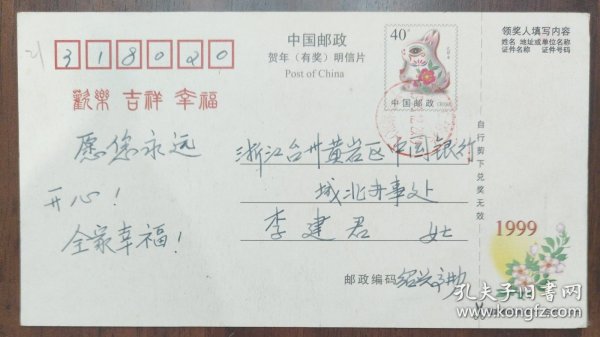 318020
中国邮政
贺年（有奖）明信片
Post of China
40分
中国邮政
领奖人填写内容
姓名 地址或单位名称
证件名称 证件号码
歡樂 吉祥 幸福
愿您永远
开心！
全家幸福！
浙江台州黄岩区中国银行
城北办事处
李建君 女士
自行剪下兑奖无效
1999
邮政编码
孔夫子旧书网